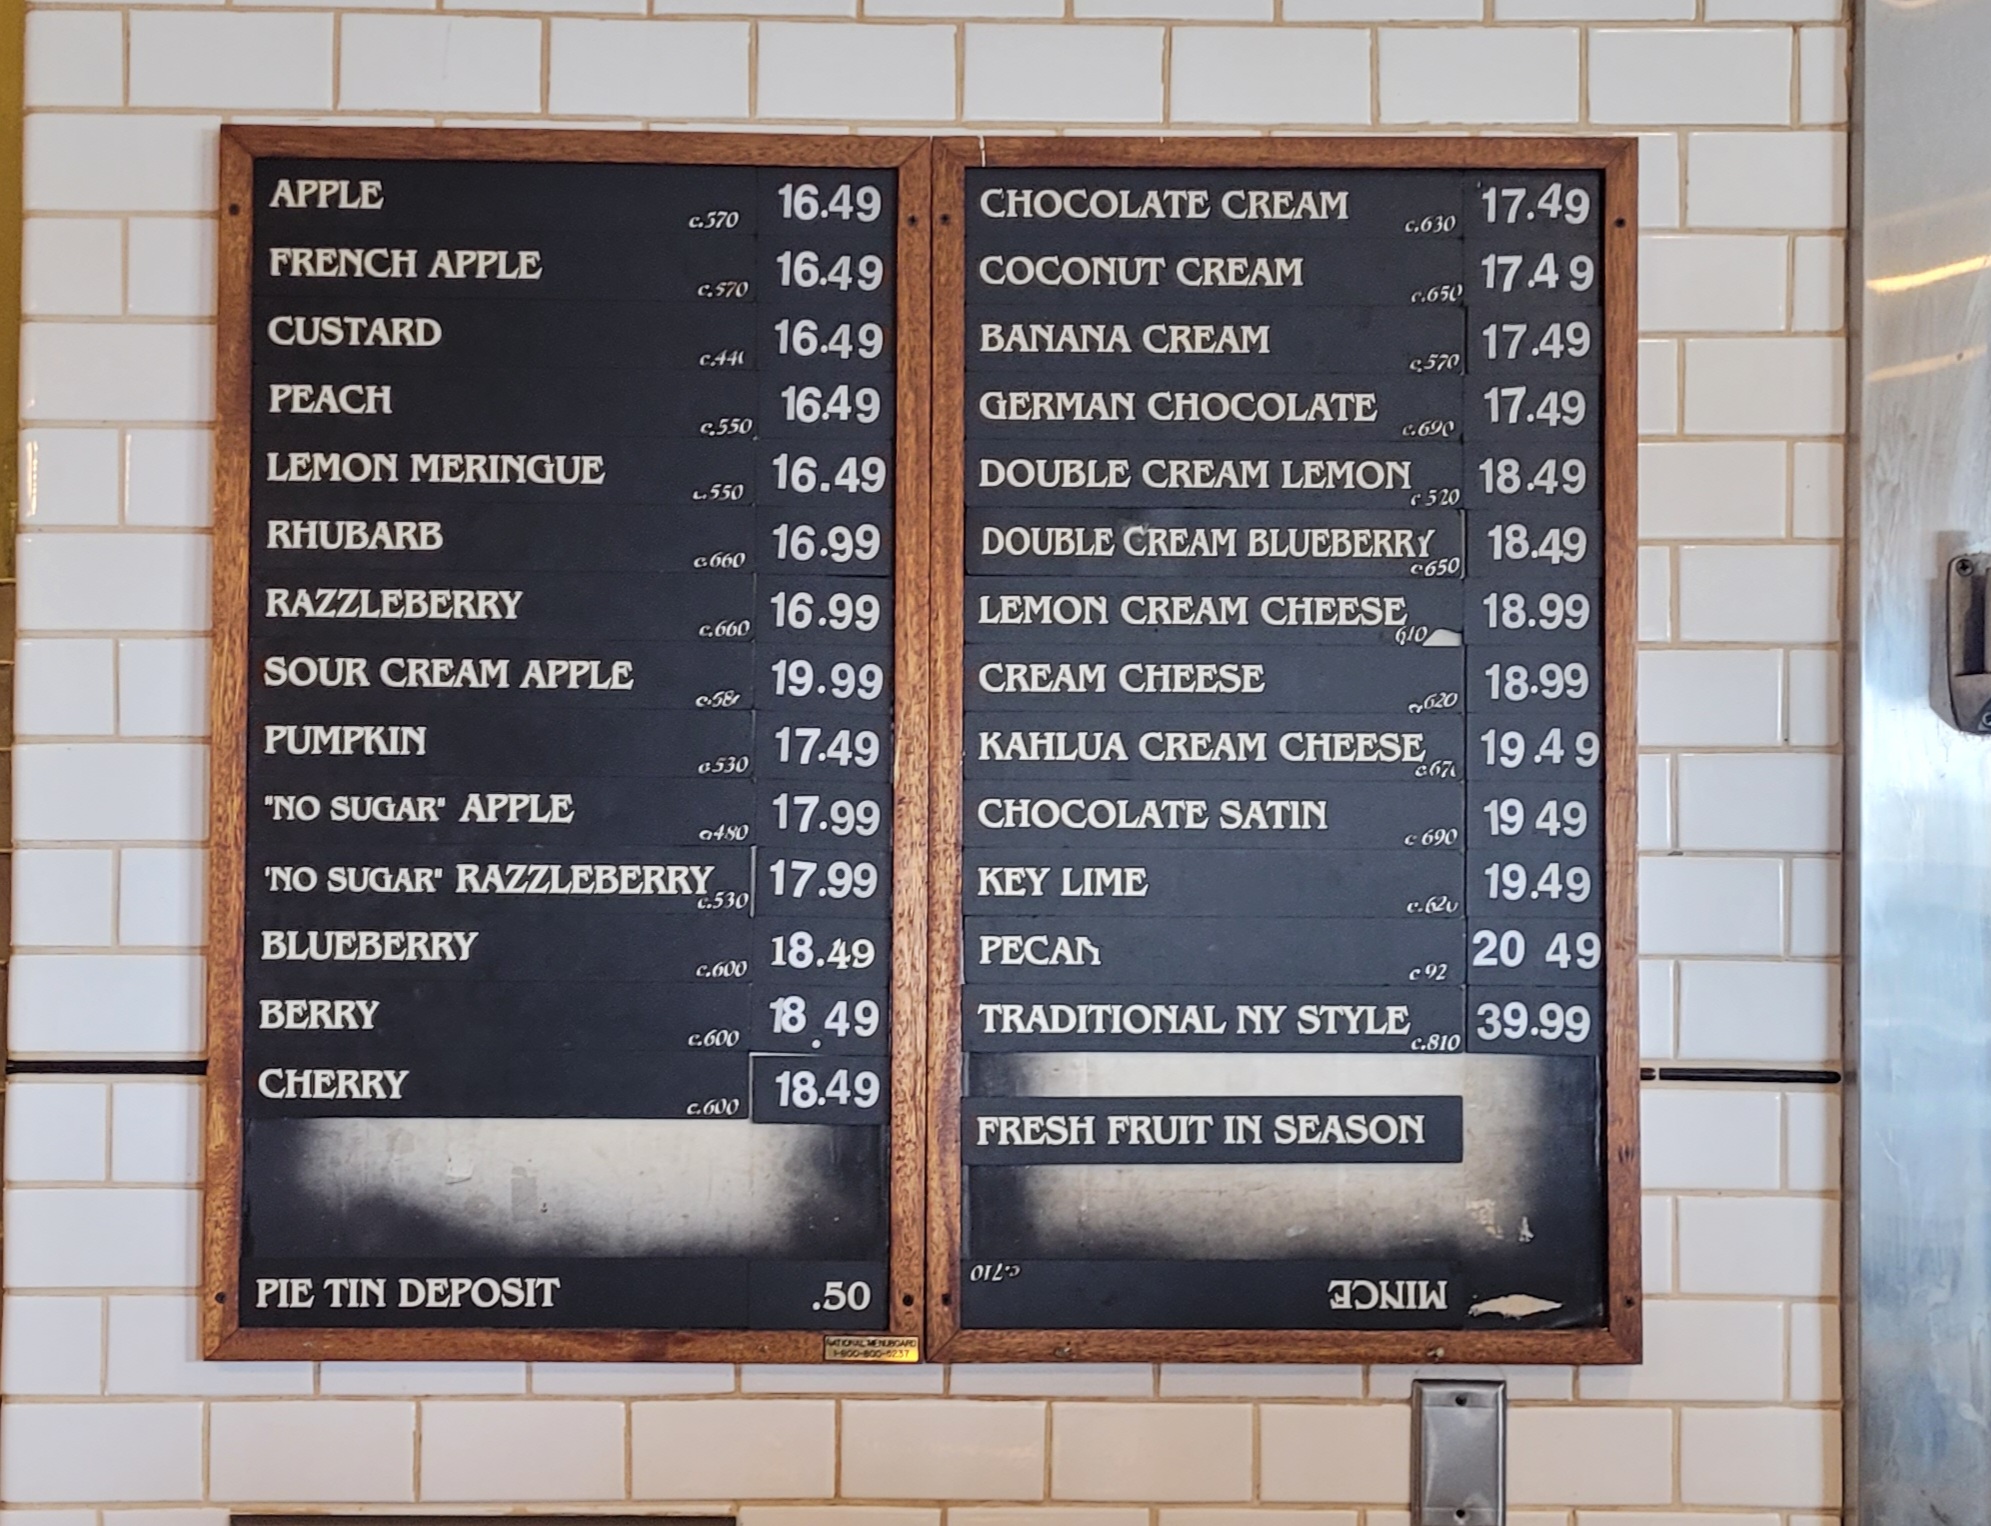 APPLE c.570 16.49
FRENCH APPLE c.570 16.49
CUSTARD c.44 16.49
PEACH c.550 16.49
LEMON MERINGUE c.550 16.49
RHUBARB c.660 16.99
RAZZLEBERRY c.660 16.99
SOUR CREAM APPLE c.58 19.99
PUMPKIN c.530 17.49
"NO SUGAR" APPLE c480 17.99
'NO SUGAR" RAZZLEBERRY c.530 17.99
BLUEBERRY c.600 18.49
BERRY c.600 18.49
CHERRY c.600 18.49
PIE TIN DEPOSIT .50
NATIONAL MENUBOARD
CHOCOLATE CREAM c.630 17.49
COCONUT CREAM c.650 17.49
BANANA CREAM c.570 17.49
GERMAN CHOCOLATE c.690 17.49
DOUBLE CREAM LEMON c 520 18.49
DOUBLE CREAM BLUEBERRY c650 18.49
LEMON CREAM CHEESE 610 18.99
CREAM CHEESE c620 18.99
KAHLUA CREAM CHEESE c.67 19.49
CHOCOLATE SATIN c 690 19 49
KEY LIME c.620 19.49
PECAN c 92 20 49
TRADITIONAL NY STYLE c.810 39.99
FRESH FRUIT IN SEASON
MINCE c.710